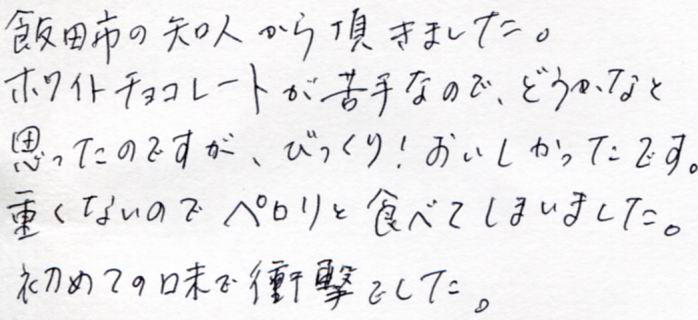 飯田市の知人から頂きました。
ホワイトチョコレートが苦手なので、どうかなと
思ったのですが、びっくり!おいしかったです。
重くないのでペロリと食べてしまいました。
初めての味で衝撃でした。